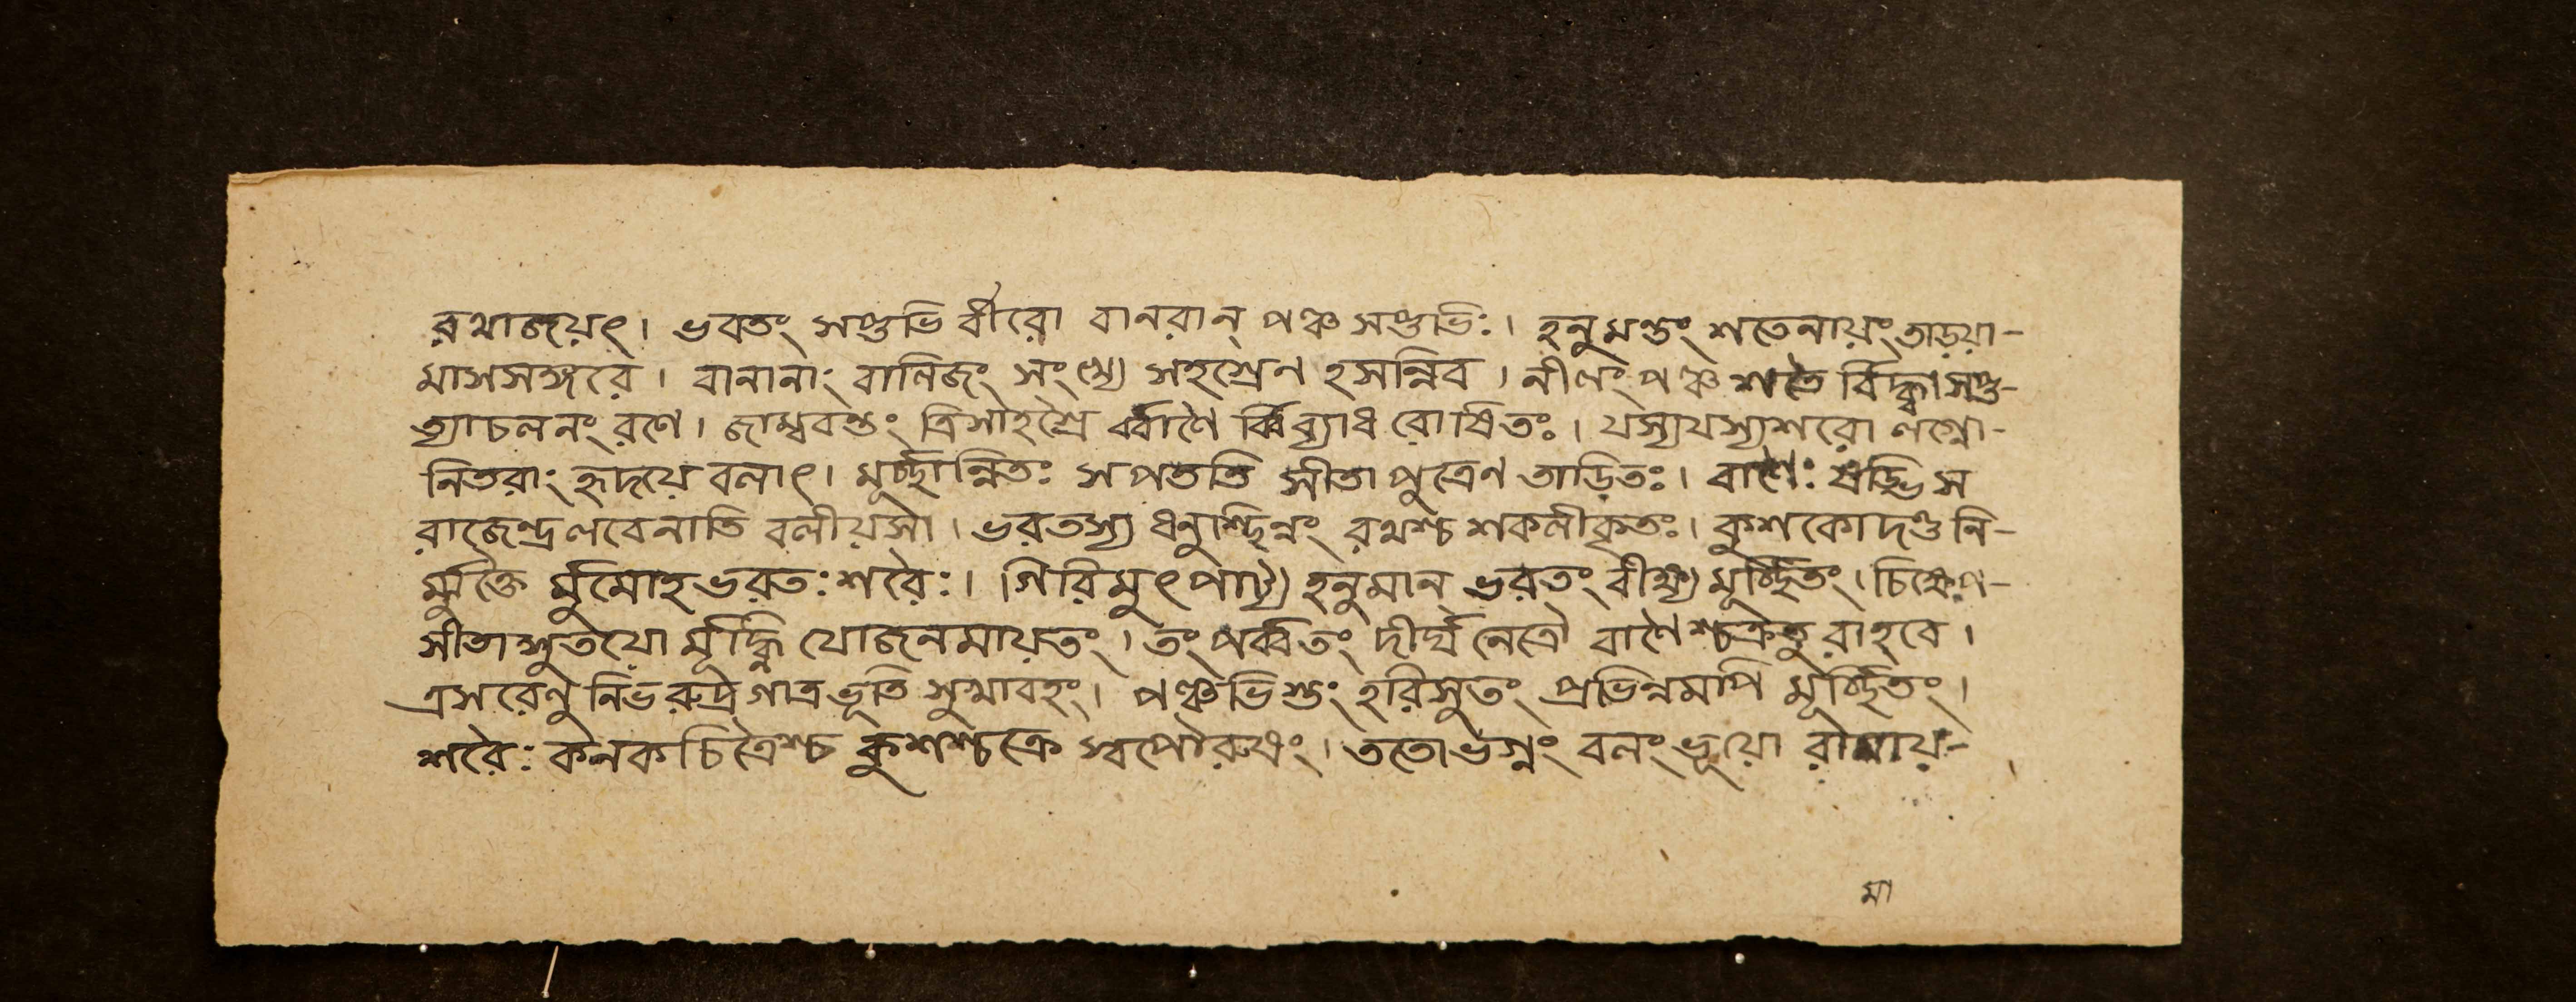 রথাজয়ৎ। ভবতং সপ্তভি র্বীরো বানরান্ পঞ্চসপ্তভিঃ। হনুমন্তং শতেনায়ং তাড়য়া-
মাসসঙ্গরে। বানানাং বালিজং সংখ্যে সহশ্রেণ হসন্নিব। নীলং পঞ্চ শতৈ র্বিদ্ধ্বাসপ্ত-
ত্যাচলনং রণে। জাম্ববন্তং ত্রিসাহশ্রৈ র্ব্বাণৈ র্ব্বিব্যাধ রোষিতঃ। যস্যযস্যশরো লগ্নো-
নিতরাং হৃদয়ে বলাৎ। মূর্চ্ছান্বিতঃ সপততি সীতাপুত্রেণ তাড়িতঃ। বাণৈঃ ষড্ভি স
রাজেন্দ্রলবেনাতি বলীয়সা। ভরতস্য ধনুশ্ছিন্নং রথশ্চ শকলীকৃতঃ। কুশকোদণ্ড নি-
র্ম্মুক্তৈ র্মুমোহভরতঃ শরৈঃ। গিরিমুৎপাট্য হনুমান্ ভরতং বীক্ষ্য মূর্চ্ছিতং। চিক্ষেপ-
সীতাশুতয়ো র্মূর্দ্ধ্নি যোজনমায়তং। তং পর্ব্বতং দীর্ঘ নেত্রৌ বাণৈশ্চক্রতু রাহবে।
ত্রসরেণু নিভরুদ্র গাত্রভূতি সুখাবহং। পঞ্চভিস্তং হরিসুতং প্রভিন্নমপি মূর্চ্ছিতং।
শরৈঃ কনকচিত্রৈশ্চ কুশশ্চক্রে স্বপৌরুষং। ততোভগ্নং বলংভূয়ো রামায়-
মা